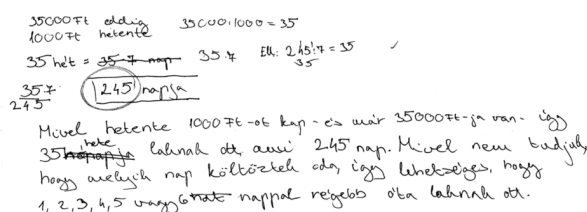 35000 Ft eddig 35000:1000 = 35
1000 Ft hetente
35 hét = 35·7 nap 35·7 Ell: 245:7 = 35 ✓
35
35·7
245 245 napja
Mivel hetente 1000 Ft-ot kap - és már 35000 Ft-ja van - így
35 hónapja hete laknak ott, ami 245 nap. Mivel nem tudjuk,
hogy melyik nap költöztek oda, így lehetséges, hogy
1, 2, 3, 4, 5 vagy 6 hat nappal régebb óta laknak ott.